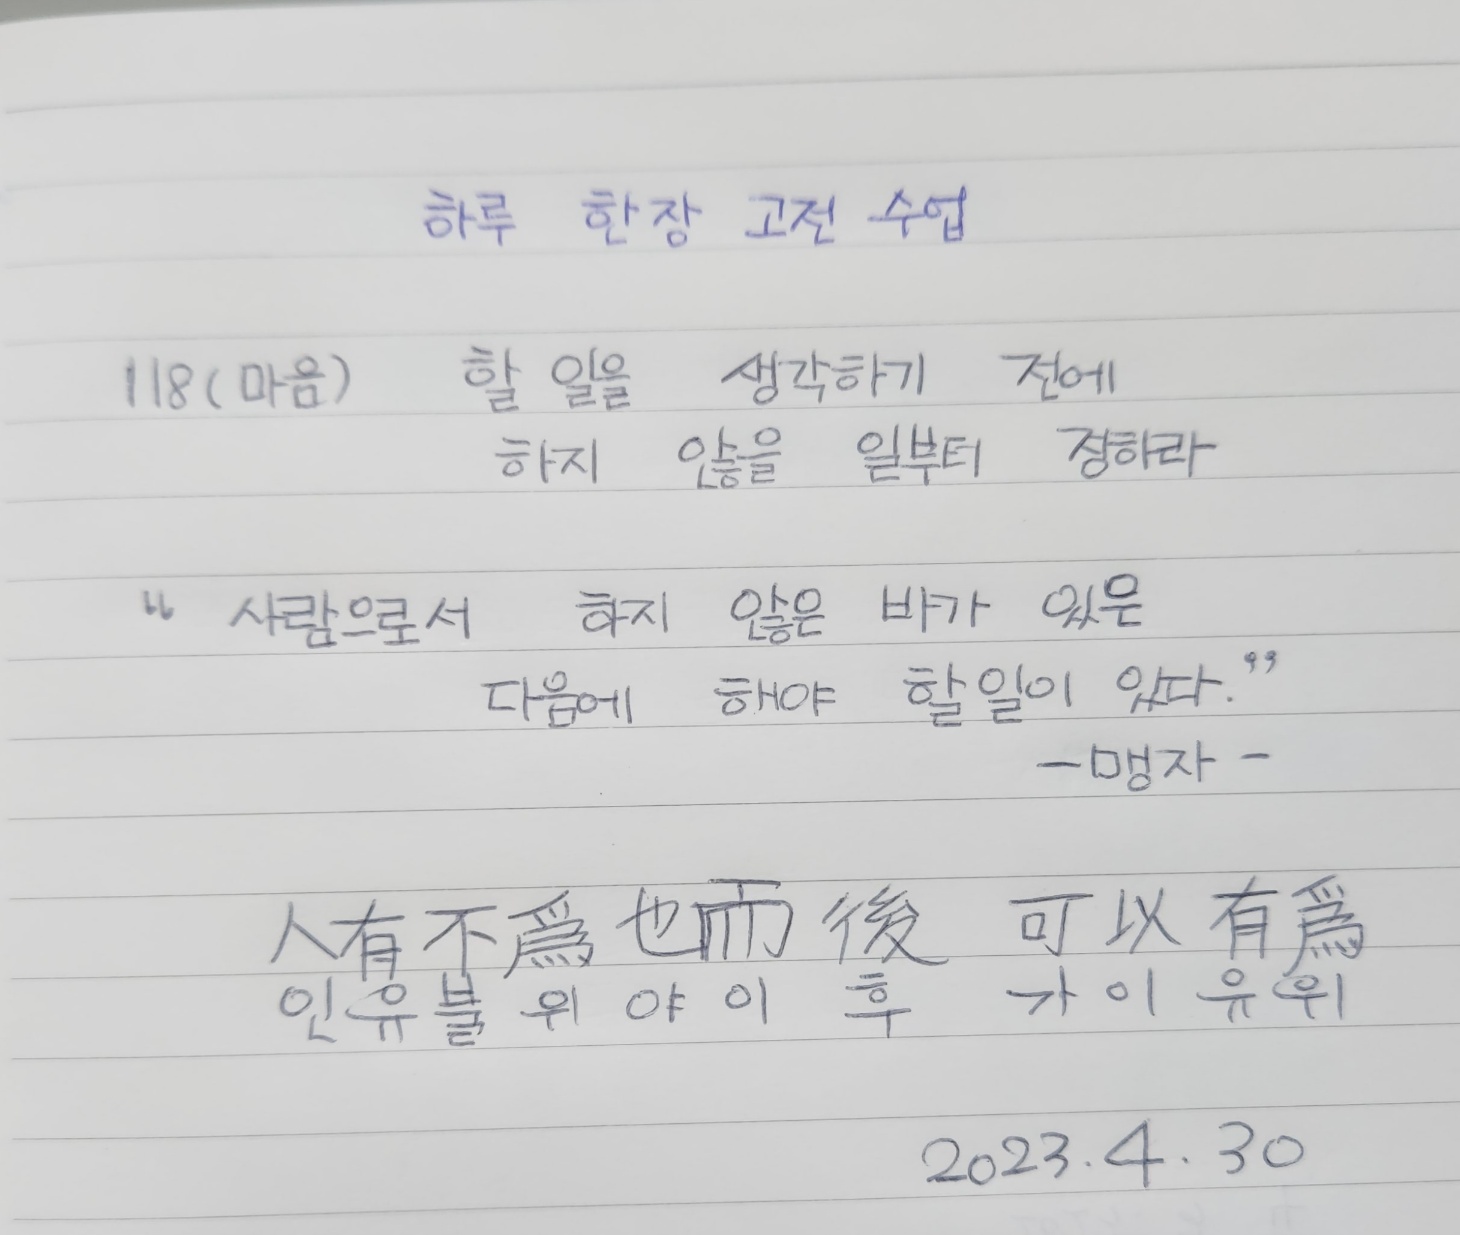 하루 한장 고전 수업
118(마음) 할 일을 생각하기 전에
하지 않을 일부터 정하라
“ 사람으로서 하지 않은 바가 있은
다음에 해야 할 일이 있다.”
- 맹자 -
人有不爲也而後 可以有爲
인유불위야이후 가이유위
2023.4.30